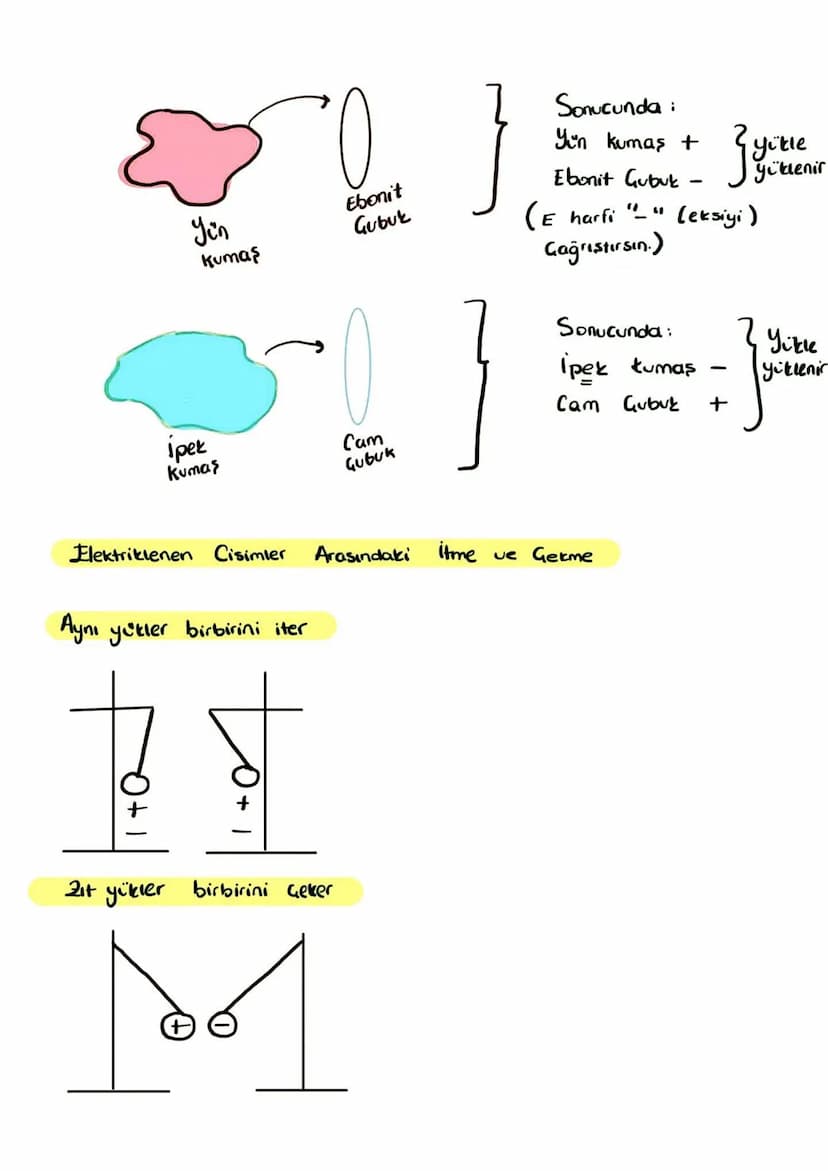 Yün
kumaş
Ebonit
Çubuk
Sonucunda :
Yün kumaş +
Ebonit Çubuk -
yükle
yüklenir
(E harfi "-" (eksiyi)
Çağrıştırsın.)
İpek
kumaş
Cam
Çubuk
Sonucunda :
İpek kumaş -
Cam Çubuk +
Yükle
yüklenir
Elektriklenen Cisimler Arasındaki İtme ve Çekme
Aynı yükler birbirini iter
+
-
+
-
Zıt yükler birbirini çeker
+
-